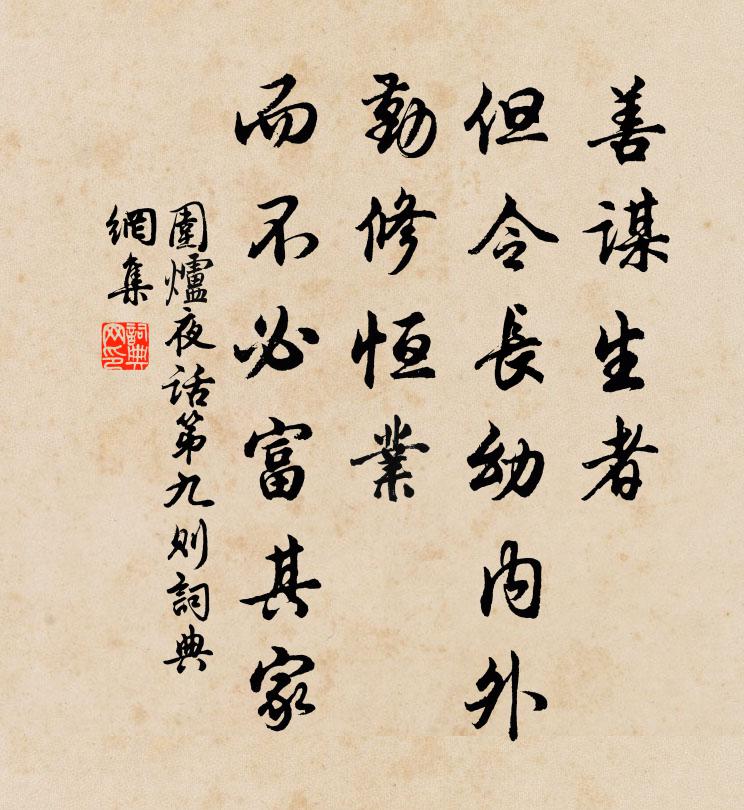 善謀生者
但令長幼內外
勤修恒業
而不必富其家
圍爐夜話第九則詞典
網集
詞典
网印